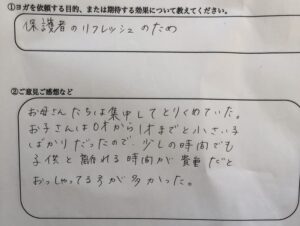 ①ヨガを依頼する目的、または期待する効果について教えてください。
保護者のリフレッシュのため
②ご意見ご感想など
お母さんたちは集中してとりくめていた。
お子さんは0才から1才までと小さい子
ばかりだったので、少しの時間でも
子供と離れる時間が貴重だと
おっしゃってる方が多かった。